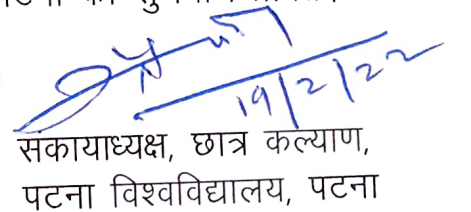 19/2/22
सकायाध्यक्ष, छात्र कल्याण,
पटना विश्वविद्यालय, पटना